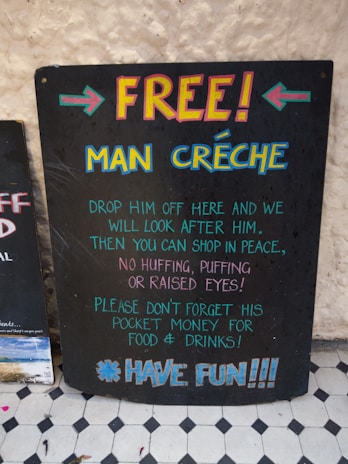 FREE!
MAN CRÉCHE
DROP HIM OFF HERE AND WE
WILL LOOK AFTER HIM.
THEN YOU CAN SHOP IN PEACE,
NO HUFFING, PUFFING
OR RAISED EYES!
PLEASE DON'T FORGET HIS
POCKET MONEY FOR
FOOD & DRINKS!
HAVE FUN!!!